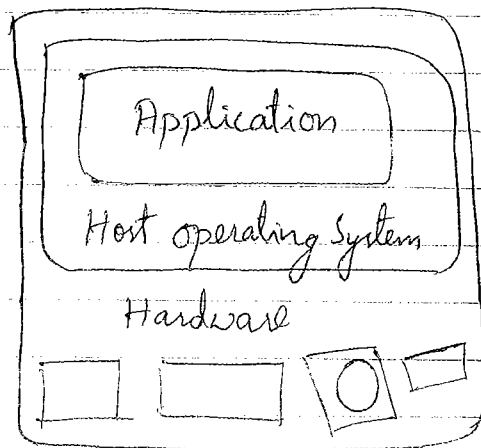 Application
Host operating System
Hardware